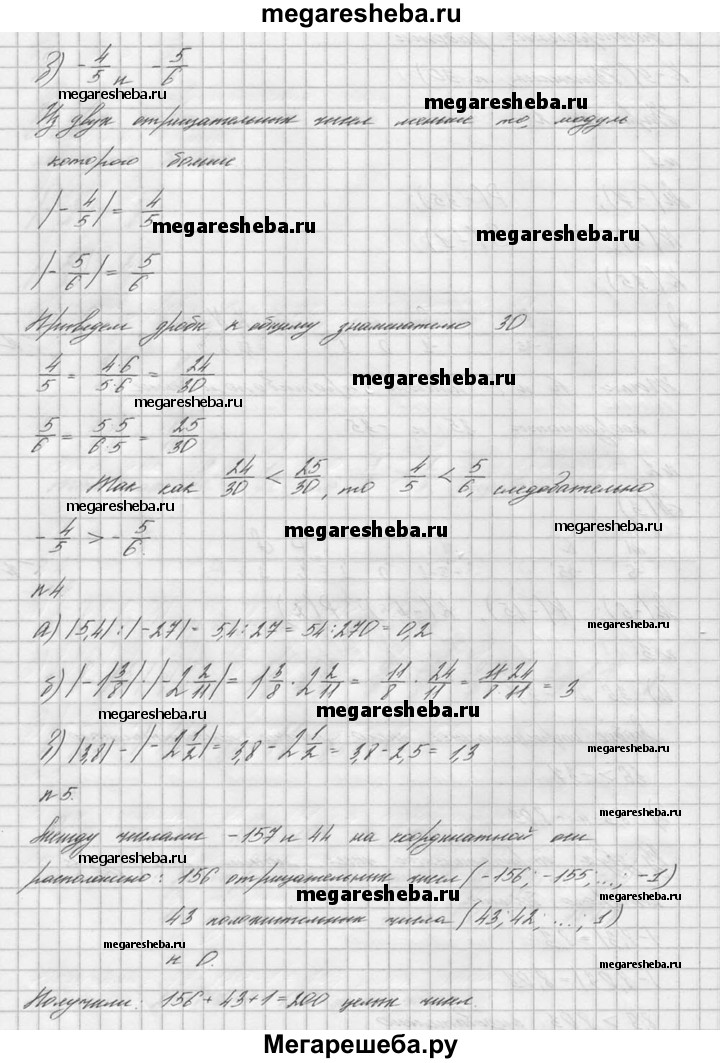 megaresheba.ru
в) -4/5 и -5/6
megaresheba.ru
megaresheba.ru
Из двух отрицательных чисел меньше то, модуль
которого больше
|-4/5| = 4/5
megaresheba.ru
megaresheba.ru
|-5/6| = 5/6
Приведем дроби к общему знаменателю 30
4/5 = 4·6/5·6 = 24/30
megaresheba.ru
megaresheba.ru
5/6 = 5·5/6·5 = 25/30
Так как 24/30 < 25/30, то 4/5 < 5/6, следовательно
megaresheba.ru
-4/5 > -5/6.
megaresheba.ru
megaresheba.ru
n4
а) |5,4| : |-27| = 5,4 : 27 = 54 : 270 = 0,2
megaresheba.ru
б) |-1 3/8| · |-2 2/11| = 1 3/8 · 2 2/11 = 11/8 · 24/11 = 11·24/8·11 = 3
megaresheba.ru
megaresheba.ru
megaresheba.ru
в) |3,8| - |-2 1/2| = 3,8 - 2 1/2 = 3,8 - 2,5 = 1,3
megaresheba.ru
n5.
megaresheba.ru
Между числами -157 и 44 на координатной оси
megaresheba.ru
расположено: 156 отрицательных чисел (-156; -155; ...; -1)
megaresheba.ru
megaresheba.ru
43 положительных числа (43; 42; ...; 1)
megaresheba.ru
и 0.
megaresheba.ru
Получили: 156 + 43 + 1 = 200 целых чисел.
Мегарешеба.ру